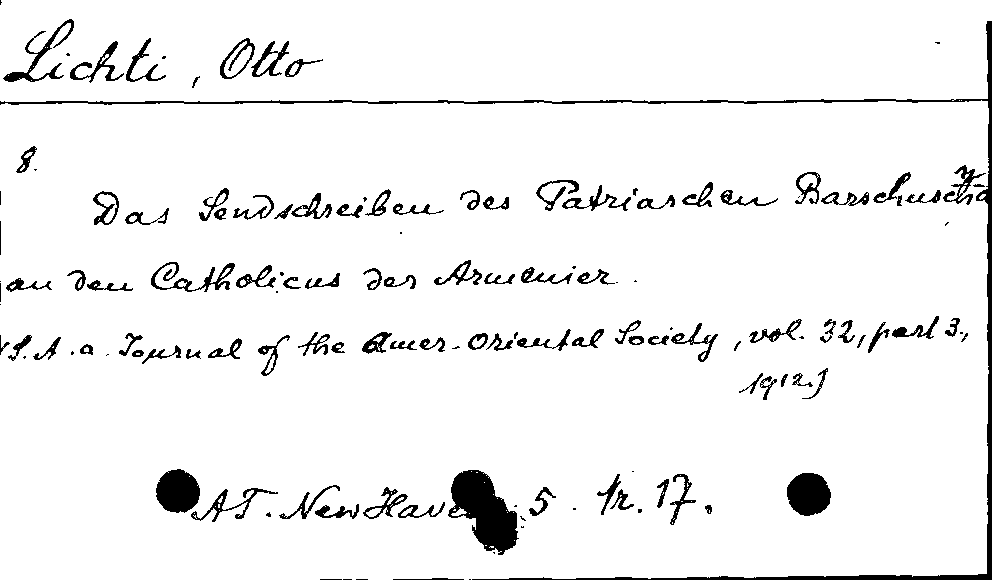 Lichti, Otto
8.
Das Sendschreiben des Patriarchen
an den Catholicus der Armenier.
(S.A. a. Journal of the Amer. Oriental Society, vol. 32, part 3.,
1912.)
AT. New Haven 5. Nr. 17.